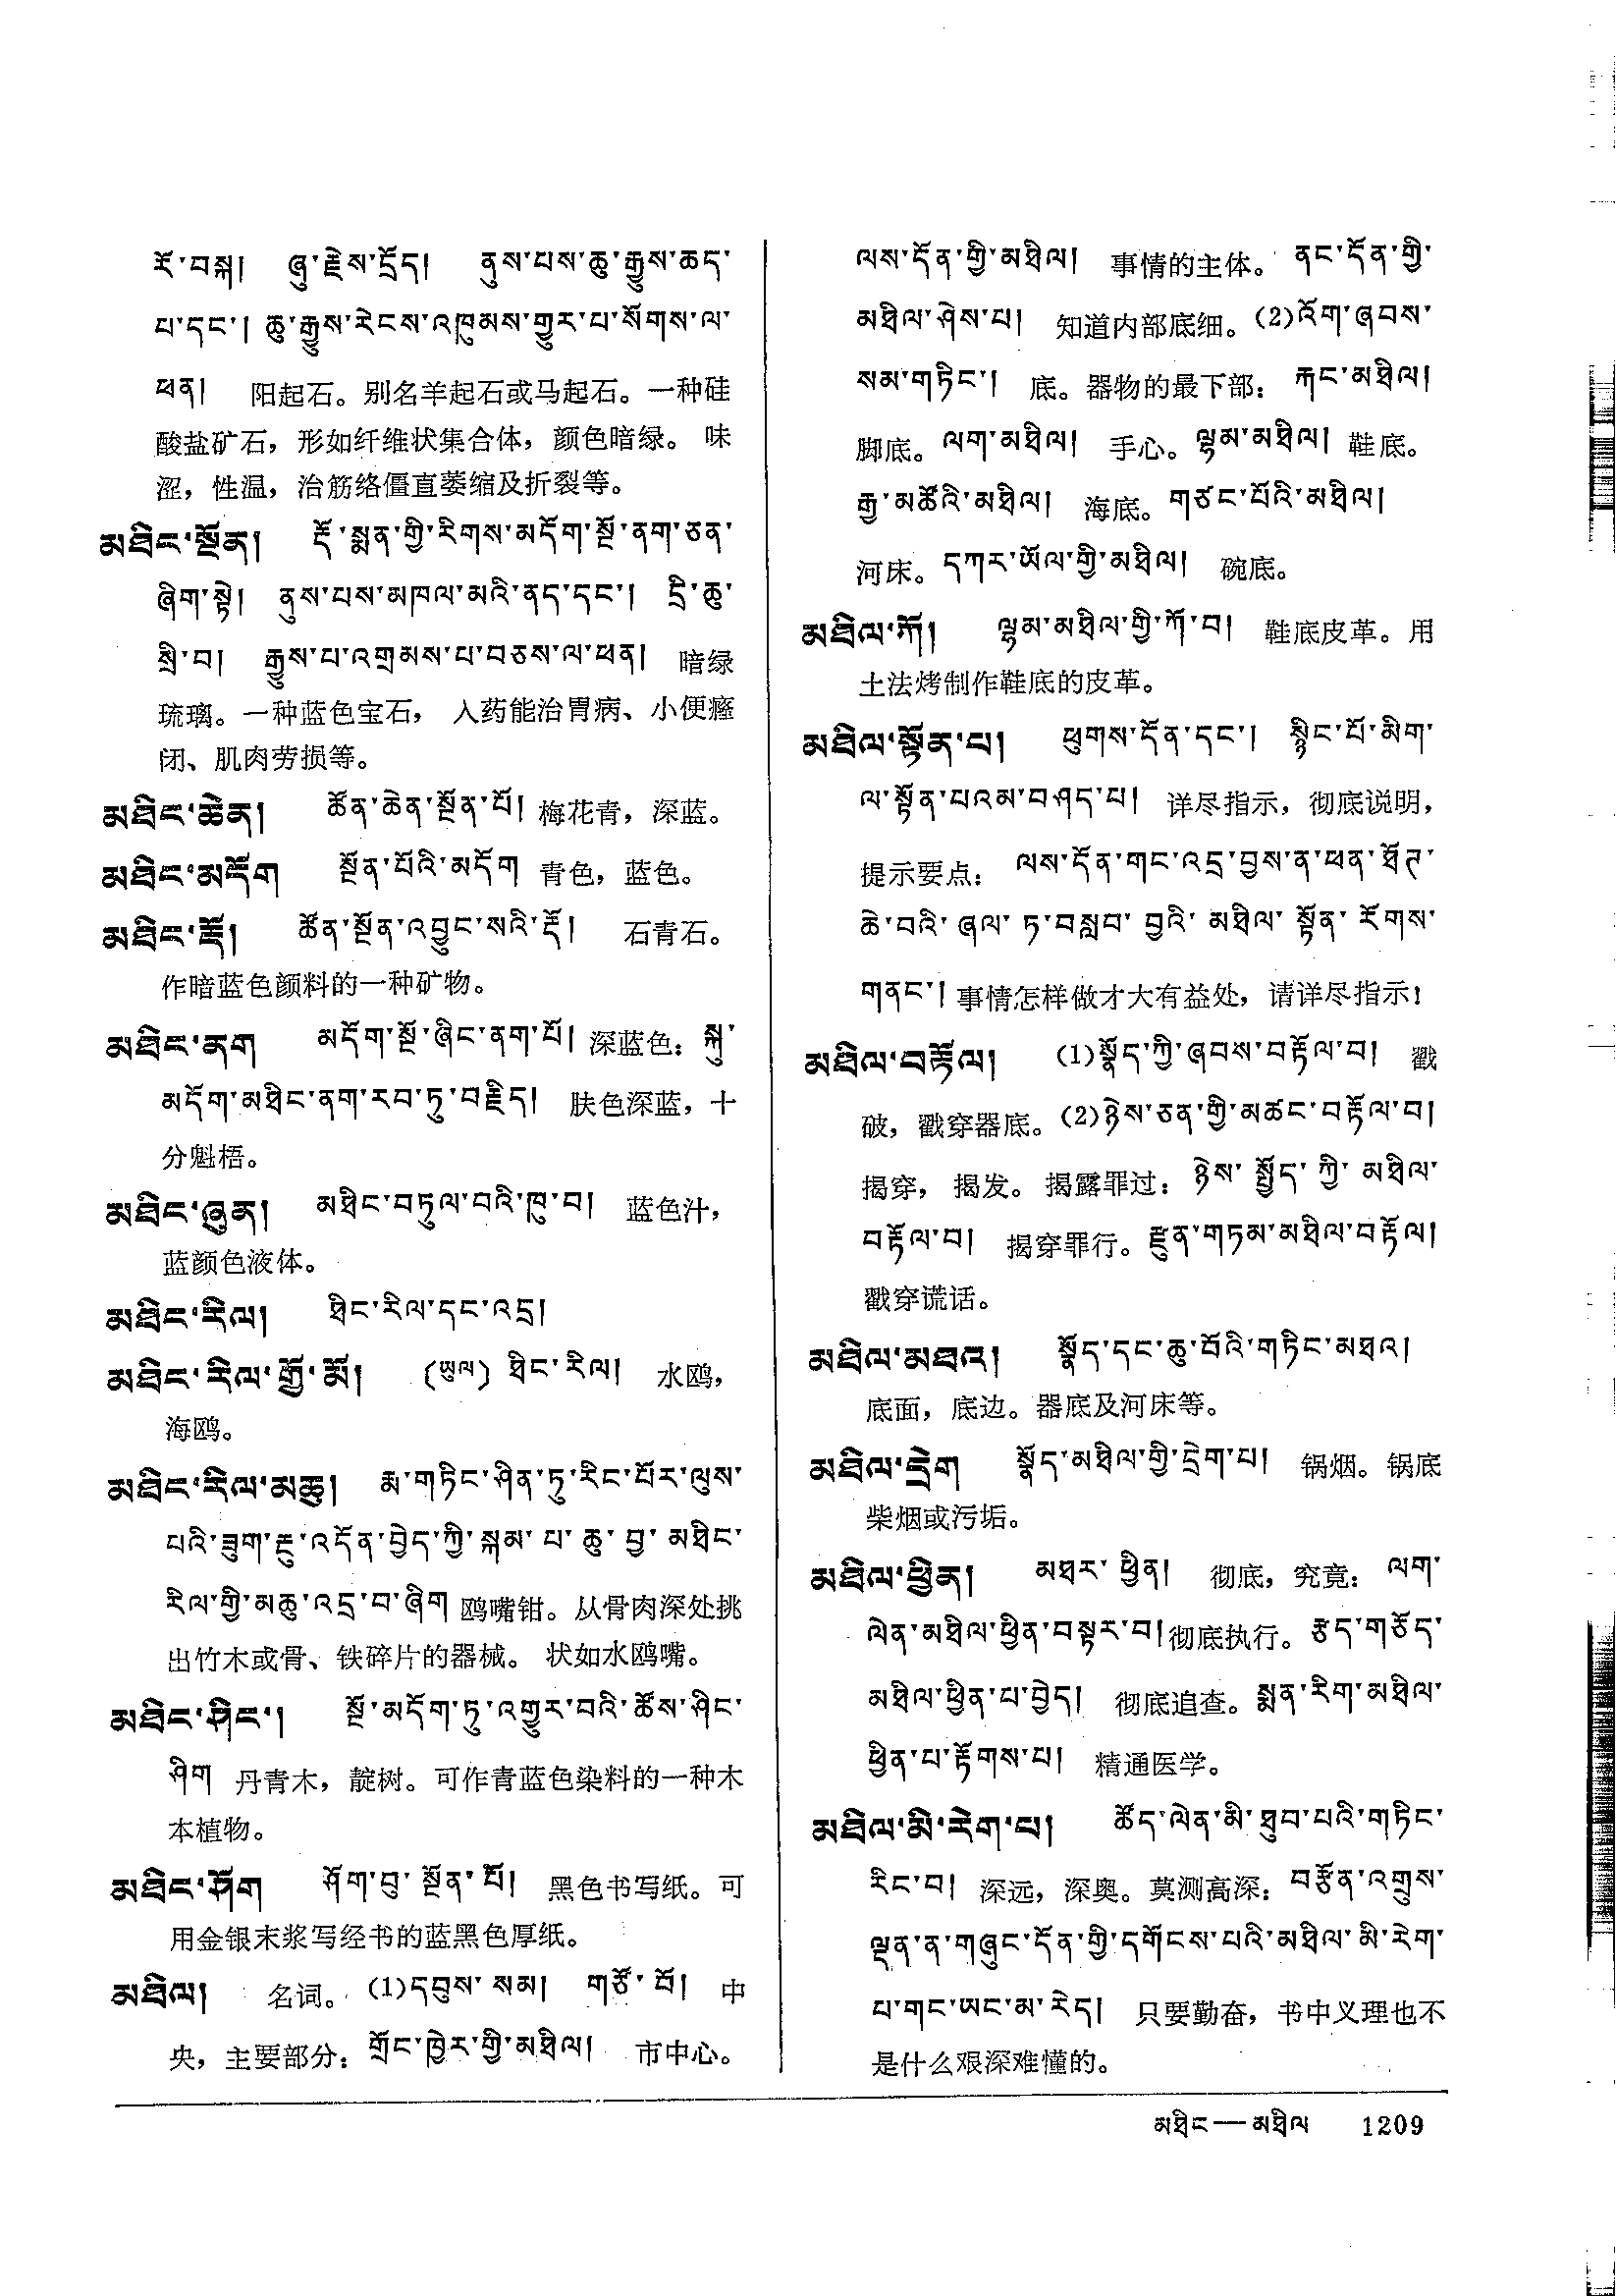 རོ་བསྐ། ཞུ་རྗེས་དྲོད། ནུས་པས་ཆུ་རྒྱུས་ཆད་
པ་དང་། ཆུ་རྒྱུས་རེངས་འཁུམས་གྱུར་པ་སོགས་ལ་
ཕན། 阳起石。别名羊起石或马起石。一种硅
酸盐矿石，形如纤维状集合体，颜色暗绿。味
涩，性温，治筋络僵直萎缩及折裂等。
མཐིང་སྔོན། རྡོ་སྨན་གྱི་རིགས་མདོག་སྔོ་ནག་ཅན་
ཞིག་སྟེ། ནུས་པས་མཁལ་མའི་ནད་དང་། དྲི་ཆུ་
སྲི་བ། རྒྱུས་པ་འགྲམས་པ་བཅས་ལ་ཕན། 暗绿
琉璃。一种蓝色宝石，入药能治胃病、小便癃
闭、肌肉劳损等。
མཐིང་ཆེན། ཚོན་ཆེན་སྔོན་པོ། 梅花青，深蓝。
མཐིང་མདོག སྔོན་པོའི་མདོག 青色，蓝色。
མཐིང་རྡོ། ཚོན་སྔོན་འབྱུང་སའི་རྡོ། 石青石。
作暗蓝色颜料的一种矿物。
མཐིང་ནག མདོག་སྔོ་ཞིང་ནག་པོ། 深蓝色：སྐུ་
མདོག་མཐིང་ནག་རབ་ཏུ་བརྗིད། 肤色深蓝，十
分魁梧。
མཐིང་ཞུན། མཐིང་བཏུལ་བའི་ཁུ་བ། 蓝色汁，
蓝颜色液体。
མཐིང་རིལ། ཐིང་རིལ་དང་འདྲ།
མཐིང་རིལ་གྱོ་མོ། (ཡུལ) ཐིང་རིལ། 水鸥，
海鸥。
མཐིང་རིལ་མཆུ། རྨ་གཏིང་ཤིན་ཏུ་རིང་པོར་ལུས་
པའི་ཟུག་རྔུ་འདོན་བྱེད་ཀྱི་སྐམ་པ་ཆུ་བྱ་མཐིང་
རིལ་གྱི་མཆུ་འདྲ་བ་ཞིག 鸥嘴钳。从骨肉深处挑
出竹木或骨、铁碎片的器械。状如水鸥嘴。
མཐིང་ཤིང་། སྔོ་མདོག་ཏུ་འགྱུར་བའི་ཚོས་ཤིང་
ཤིག 丹青木，靛树。可作青蓝色染料的一种木
本植物。
མཐིང་ཤོག ཤོག་བུ་སྔོན་པོ། 黑色书写纸。可
用金银末浆写经书的蓝黑色厚纸。
མཐིལ། 名词。(1)དབུས་སམ། གཙོ་བོ། 中
央，主要部分：གྲོང་ཁྱེར་གྱི་མཐིལ། 市中心。
ལས་དོན་གྱི་མཐིལ། 事情的主体。ནང་དོན་གྱི་
མཐིལ་ཤེས་པ། 知道内部底细。(2)འོག་ཞབས་
སམ་གཏིང་། 底。器物的最下部：རྐང་མཐིལ།
脚底。ལག་མཐིལ། 手心。ལྷམ་མཐིལ། 鞋底。
རྒྱ་མཚོའི་མཐིལ། 海底。གཙང་པོའི་མཐིལ།
河床。དཀར་ཡོལ་གྱི་མཐིལ། 碗底。
མཐིལ་ཀོ། ལྷམ་མཐིལ་གྱི་ཀོ་བ། 鞋底皮革。用
土法烤制作鞋底的皮革。
མཐིལ་སྟོན་པ། ཕུགས་དོན་དང་། སྙིང་པོ་མིག་
ལ་སྟོན་པའམ་བཤད་པ། 详尽指示，彻底说明，
提示要点：ལས་དོན་གང་འདྲ་བྱས་ན་ཕན་ཐོཊ་
ཆེ་བའི་ཞལ་ཏ་བསླབ་བྱའི་མཐིལ་སྟོན་རོགས་
གནང་། 事情怎样做才大有益处，请详尽指示！
མཐིལ་བརྟོལ། (1)སྣོད་ཀྱི་ཞབས་བརྟོལ་བ། 戳
破，戳穿器底。(2)ཉེས་ཅན་གྱི་མཚང་བརྟོལ་བ།
揭穿，揭发。揭露罪过：ཉེས་སྤྱོད་ཀྱི་མཐིལ་
བརྟོལ་བ། 揭穿罪行。རྫུན་གཏམ་མཐིལ་བརྟོལ།
戳穿谎话。
མཐིལ་མཐའ། སྣོད་དང་ཆུ་བོའི་གཏིང་མཐའ།
底面，底边。器底及河床等。
མཐིལ་དྲེག སྣོད་མཐིལ་གྱི་དྲེག་པ། 锅烟。锅底
柴烟或污垢。
མཐིལ་ཕྱིན། མཐར་ཕྱིན། 彻底，究竟：ལག་
ལེན་མཐིལ་ཕྱིན་བསྟར་བ། 彻底执行。རྩད་གཅོད་
མཐིལ་ཕྱིན་པ་བྱེད། 彻底追查。སྨན་རིག་མཐིལ་
ཕྱིན་པ་རྟོགས་པ། 精通医学。
མཐིལ་མི་རེག་པ། ཚོད་ལེན་མི་ཐུབ་པའི་གཏིང་
རིང་བ། 深远，深奥。莫测高深：བརྩོན་འགྲུས་
ལྡན་ན་གཞུང་དོན་གྱི་དགོངས་པའི་མཐིལ་མི་རེག་
པ་གང་ཡང་མ་རེད། 只要勤奋，书中义理也不
是什么艰深难懂的。
མཐིང——མཐིལ 1209